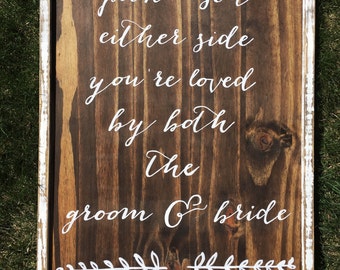 either side
you're loved
by both
the
groom & bride